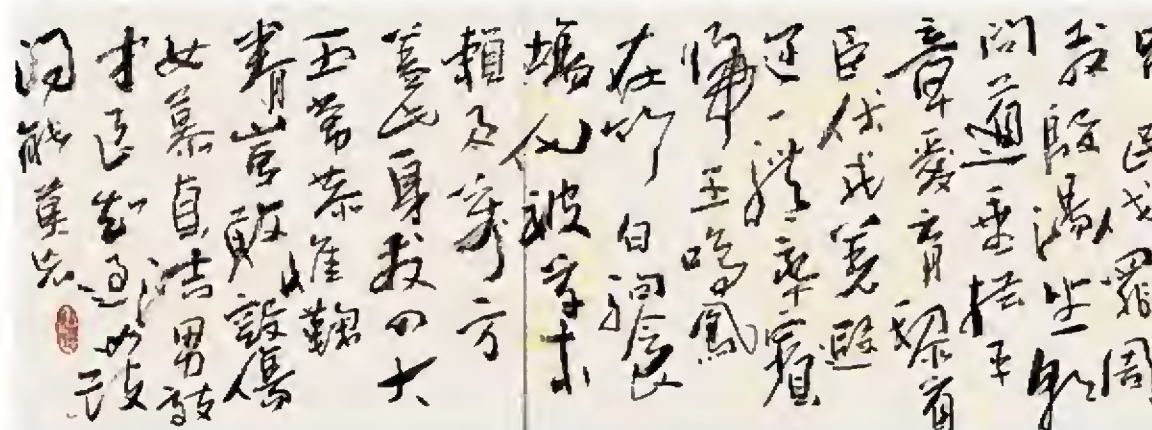 民伐罪周
發殷湯坐朝
問道垂拱平
章愛育黎首
臣伏戎羌遐
迩一體率賓
歸王鳴鳳
在竹白駒食
場化被草木
賴及萬方
蓋此身髮四大
五常恭惟鞠
養豈敢毀傷
女慕貞潔男效
才良知過必改
得能莫忘